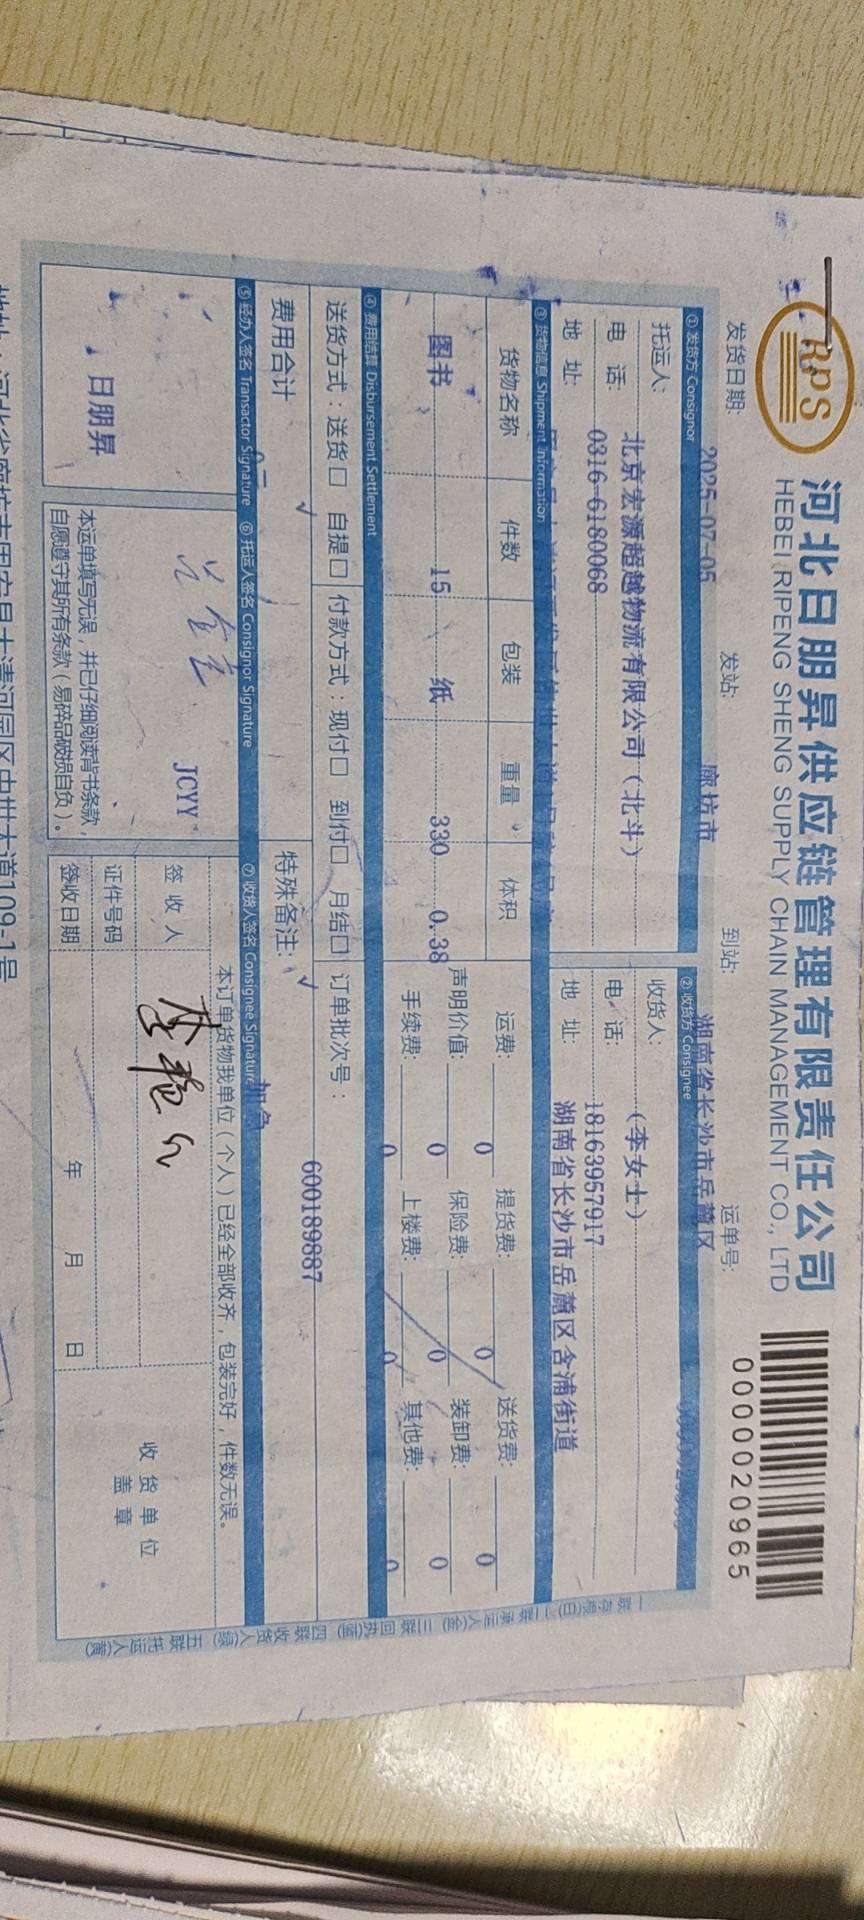 RPS
河北日朋昇供应链管理有限责任公司
HEBEI RIPENG SHENG SUPPLY CHAIN MANAGEMENT CO., LTD
0000020965
发货日期: 2025-07-05 发站: 廊坊市 到站: 湖南省长沙市岳麓区 运单号:
① 发货方 Consignor ② 收货方 Consignee
托运人: 北京宏源超越物流有限公司(北斗) 收货人: (李女士)
电 话: 0316-6180068 电 话: 18163957917
地 址: 地 址: 湖南省长沙市岳麓区含浦街道
③ 货物信息 Shipment Information
货物名称 件数 包装 重量 体积 运费: 0 提货费: 0 送货费: 0
图书 15 纸 330 0.38 声明价值: 0 保险费: 0 装卸费: 0
手续费: 0 上楼费: 0 其他费: 0
④ 费用结算 Disbursement Settlement
送货方式:送货□ 自提□ 付款方式:现付□ 到付□ 月结□ 订单批次号: 600189887
费用合计 特殊备注:
⑤ 经办人签名 Transactor Signature ⑥ 托运人签名 Consignor Signature ⑦ 收货人签名 Consignee Signature
本订单货物我单位(个人)已经全部收齐,包装完好,件数无误。
日朋昇 JCYY 签 收 人
证件号码
签收日期 年 月 日
收货单位
盖章
本运单填写无误,并已仔细阅读背书条款,
自愿遵守其所有条款(易碎品破损自负)。
一联存根(白) 二联承运人(金) 三联回执(蓝) 四联收货人(绿) 五联托运人(黄)
大道109-1号